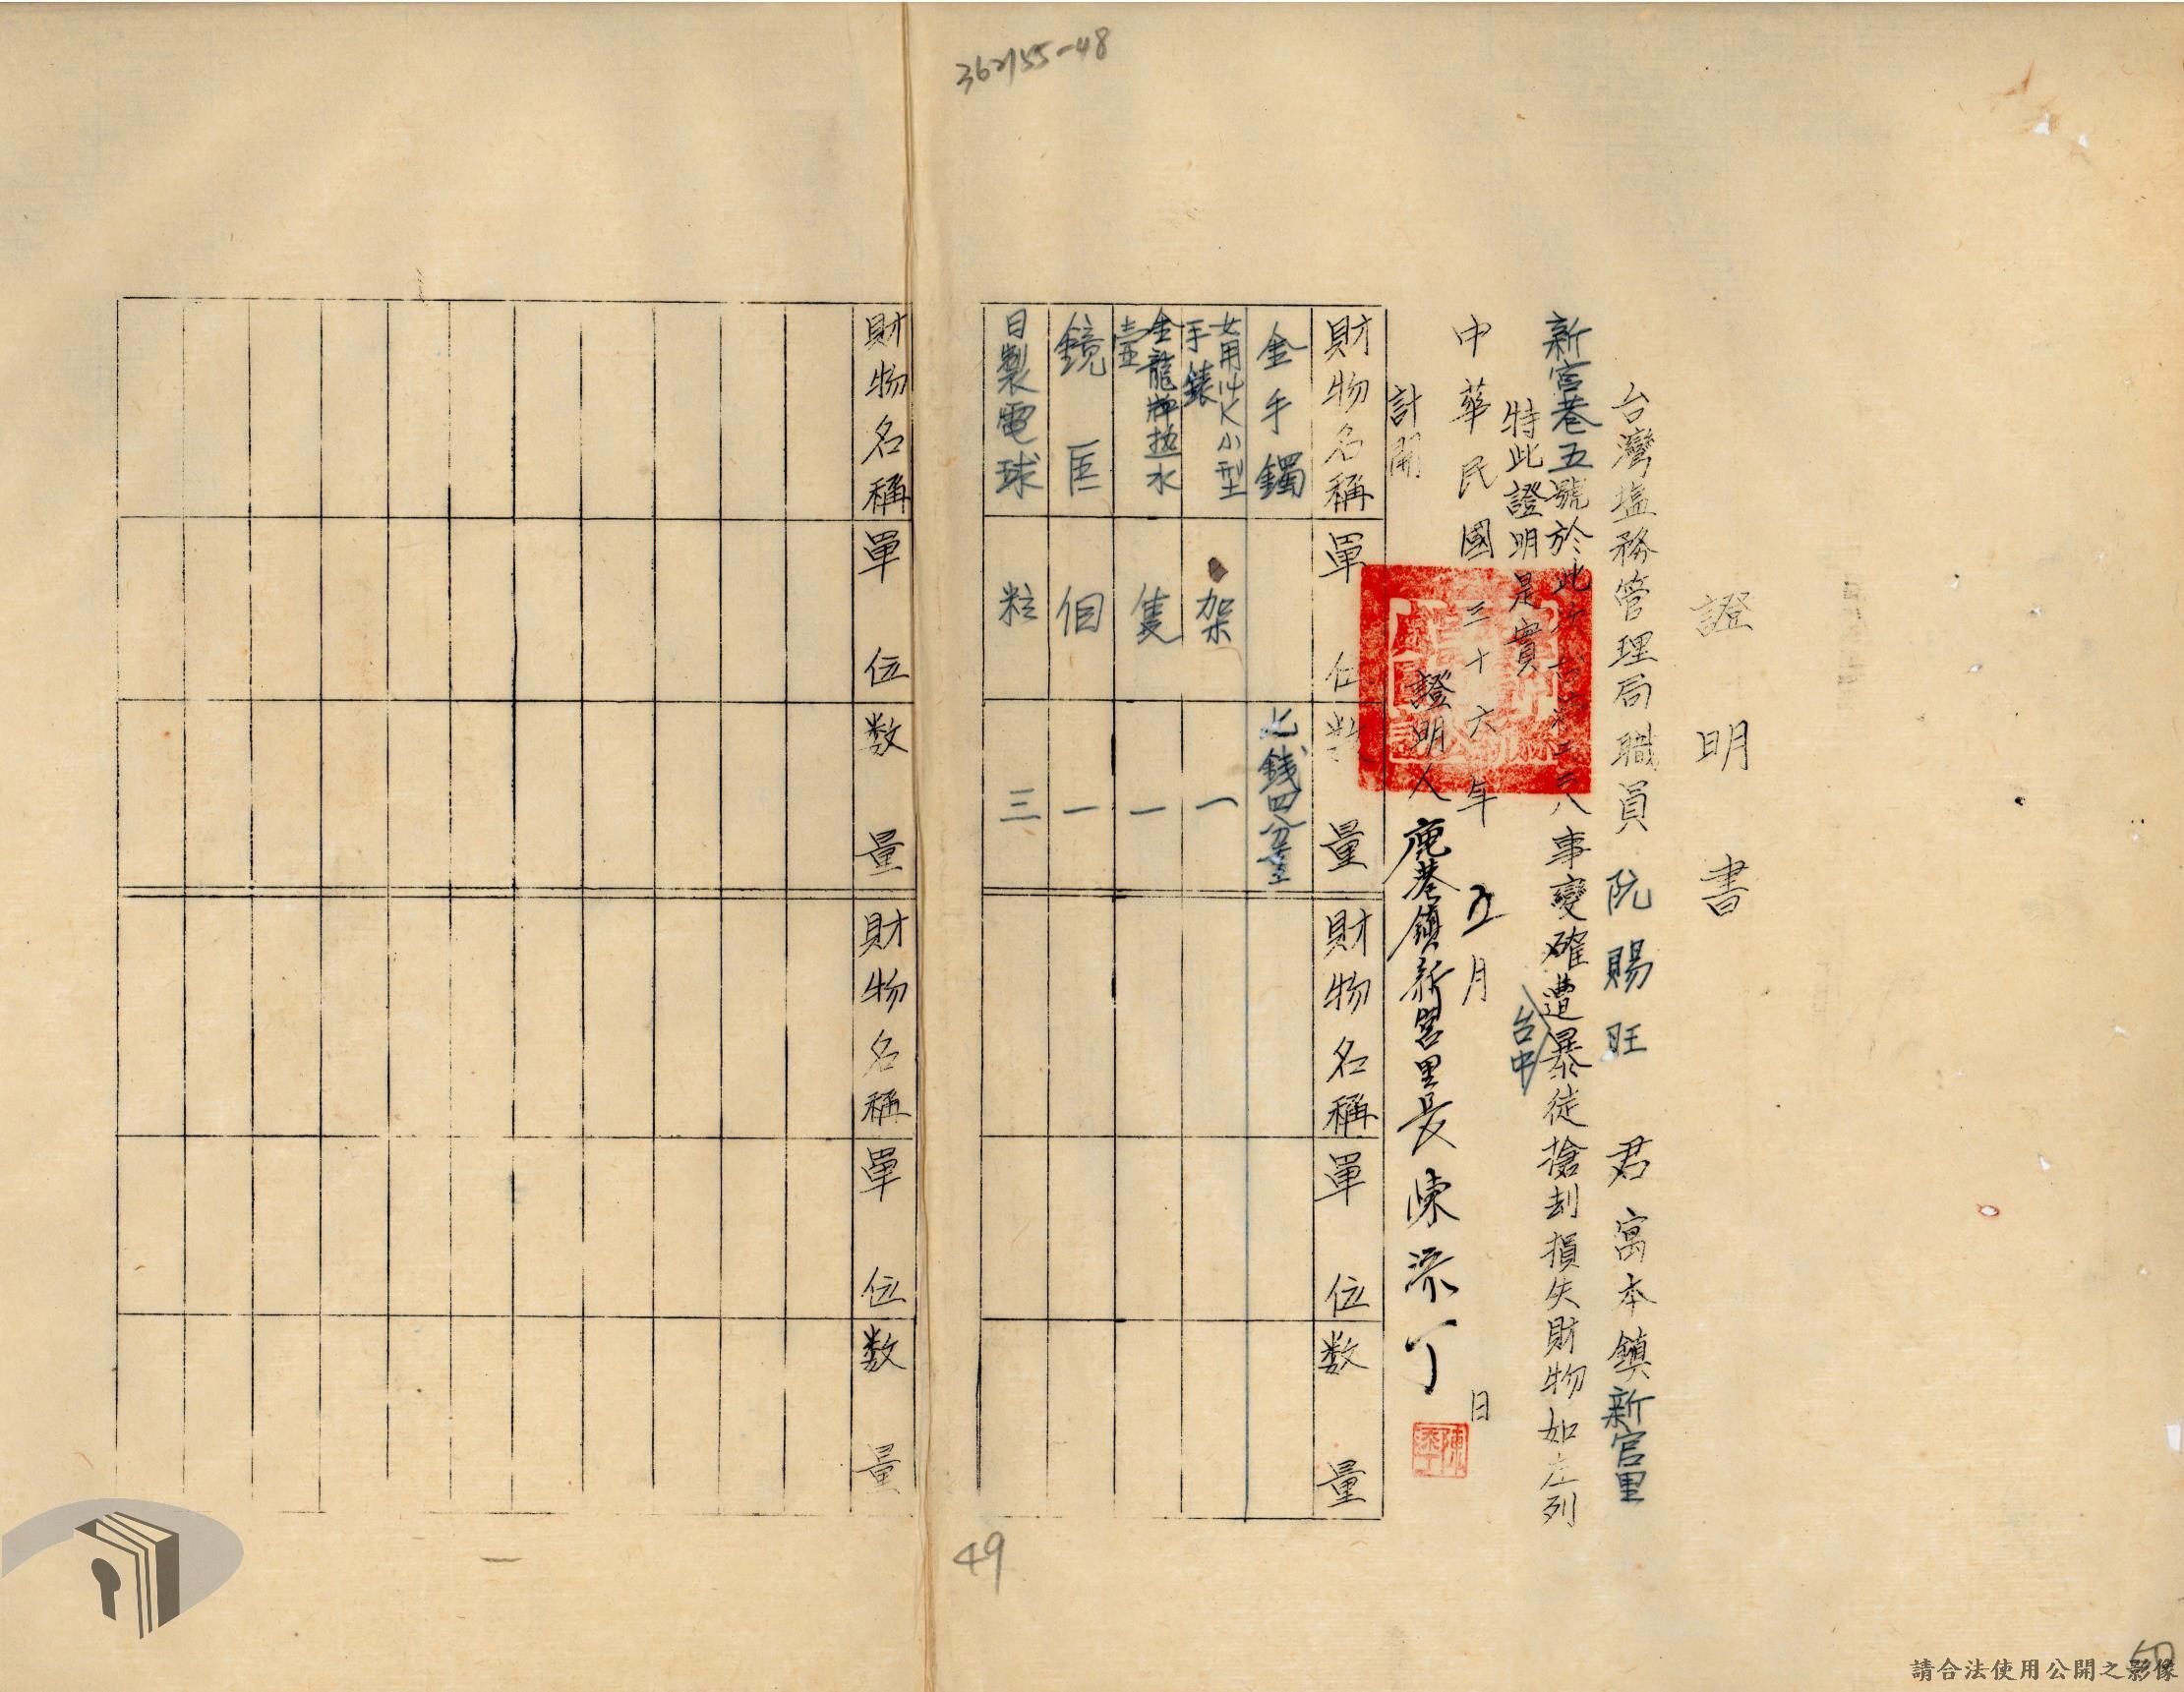 362/55-48
證明書
台灣塩務管理局職員阮賜旺君寓本鎮新宮里
新宮巷五號於此次台灣二二八事變確遭暴徒搶刦損失財物如左列
台中
特此證明是實
中華民國三十六年五月 日
證明人鹿港鎮新宮里長陳添丁
計開
財物名稱 單位 数量 財物名稱 單位 数量
金手鐲 七錢四分重
女用14K小型手錶 架 一
金龍牌热水壺 隻 一
鏡匡 個 一
日製電球 粒 三
財物名稱 單位 数量 財物名稱 單位 数量
49
請合法使用公開之影像